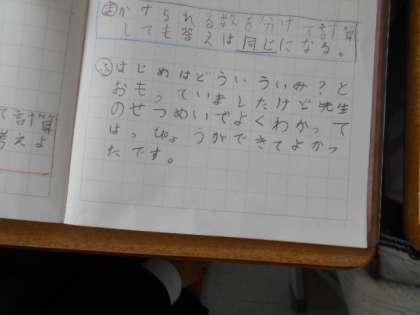 まかけられる数を分けて計算
しても答えは同じになる。
ふはじめはどういういみ?と
おもっていましたけど先生
のせつめいでよくわかって
はっぴょうができてよかっ
たです。
て計算
考えよ